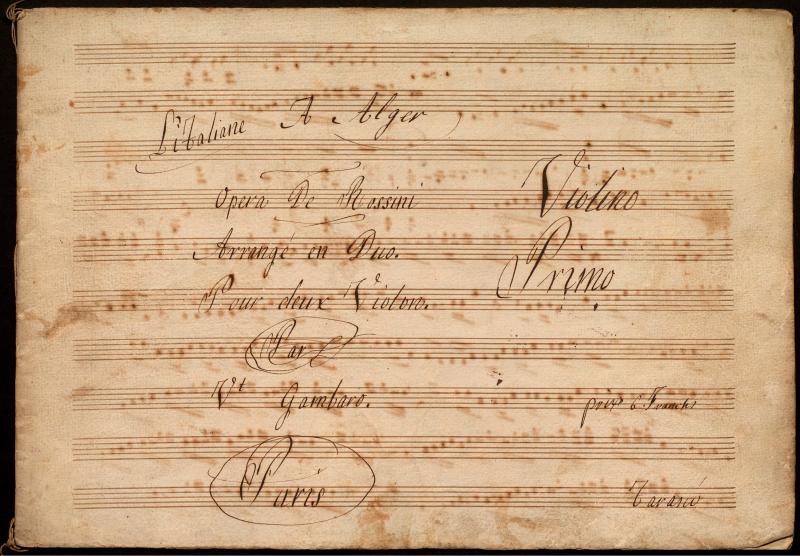 L'italiane A Alger
Opera De Rossini
Violino
Arrangé en Duo.
Primo
Pour deux Violons.
Par
Vt Gambaro.
prix 6 Francks
Paris